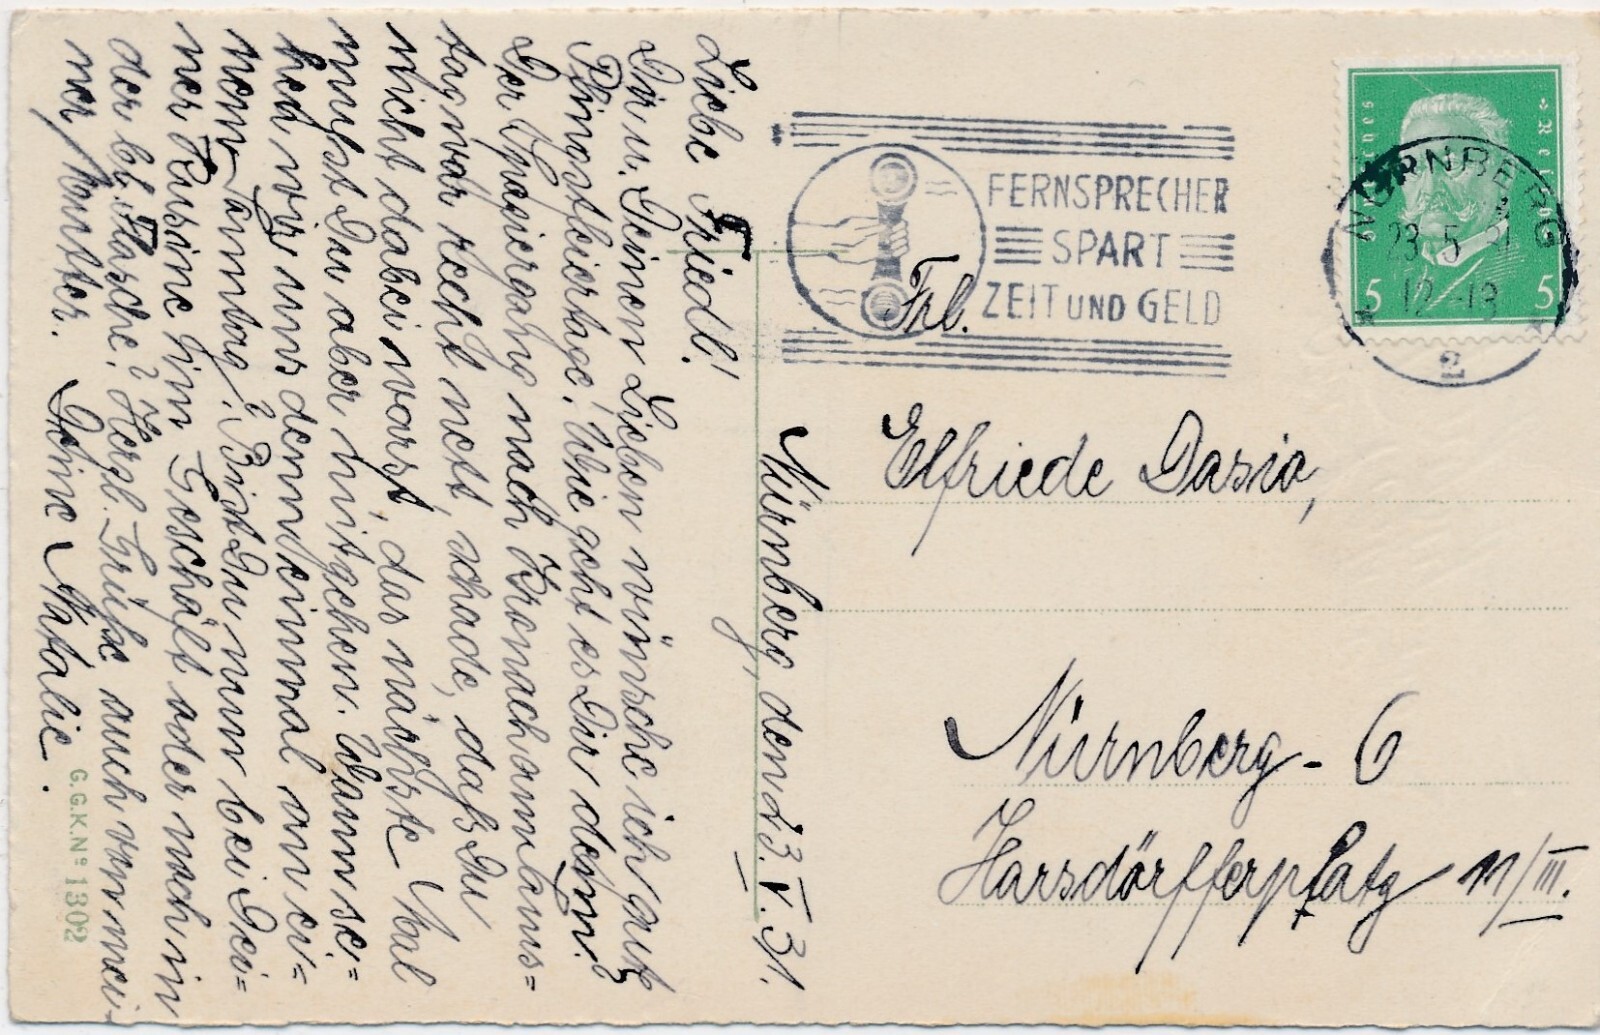 Liebe Friedl!
Dir u. Deinen Lieben wünsche ich gut
Pfingstfeiertage! Wie geht es Dir denn?
Der Spaziergang nach Kronach am Sams=
tag war recht nett, schade, daß Du
nicht dabei warst, das nächste Mal
mußt Du aber mitgehen. Wann se-
hen wir uns denn einmal an ei=
nem Samstag? Bist Du nun bei Dei=
ner Kusine im Geschäft oder noch in
der bl. Flasche? Herzl. Grüße auch von mei-
ner Schwester.
Deine Natalie.
G.G.K.Nº 1302
Nürnberg, den 23.V.31.
FERNSPRECHER
SPART
ZEIT UND GELD
Deutsches Reich
5 5
NÜRNBERG
23.5.31
12-13
* 2 *
Frl.
Elfriede Dasio,
Nürnberg-6
Harsdörfferplatz 11/III.